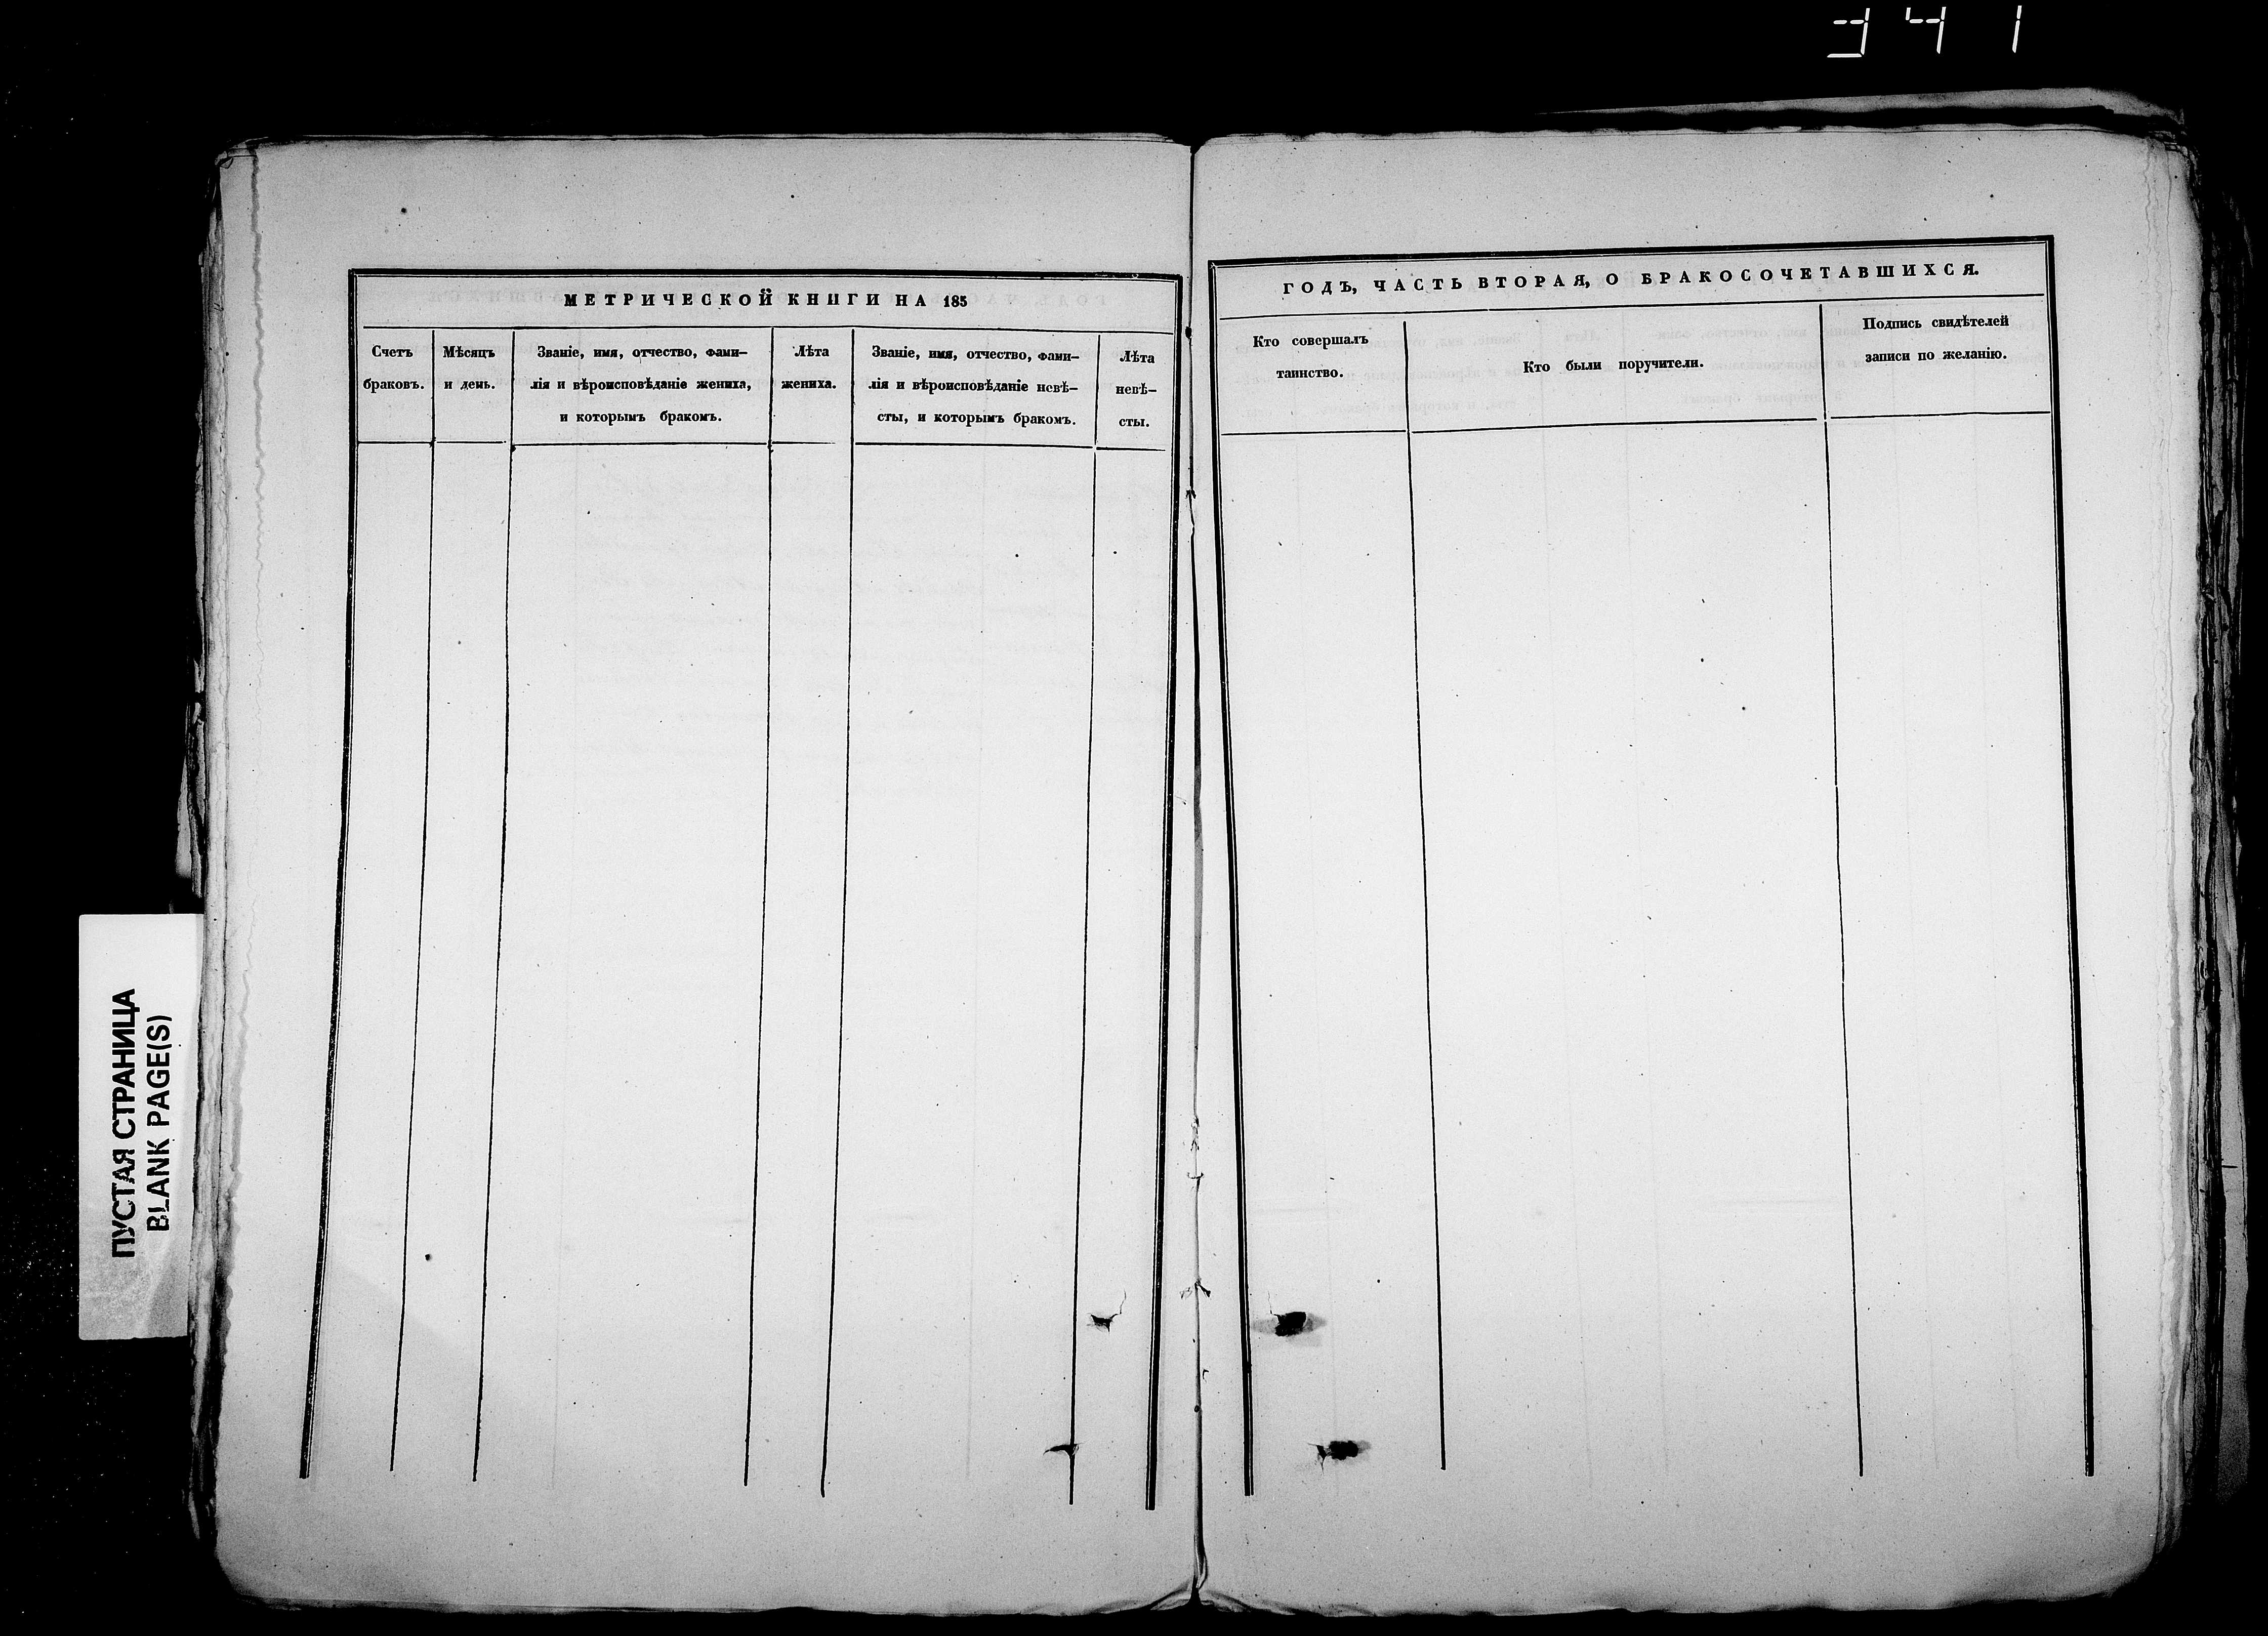 341
МЕТРИЧЕСКОЙ КНИГИ НА 185
Счетъ
браковъ.
Мѣсяцъ
и день.
Званіе, имя, отчество, фами–
лія и вѣроисповѣданіе жениха,
и которымъ бракомъ.
Лѣта
жениха.
Званіе, имя, отчество, фами–
лія и вѣроисповѣданіе невѣ–
сты, и которымъ бракомъ.
Лѣта
невѣ–
сты.
ГОДЪ, ЧАСТЬ ВТОРАЯ, О БРАКОСОЧЕТАВШИХСЯ.
Кто совершалъ
таинство.
Кто были поручители.
Подпись свидѣтелей
записи по желанію.
ПУСТАЯ СТРАНИЦА
BLANK PAGE(S)